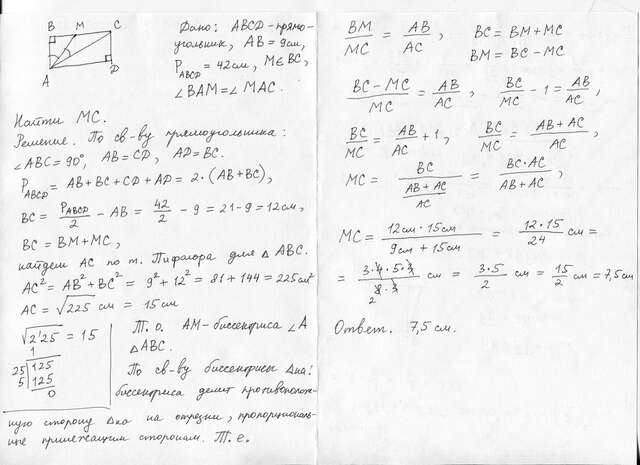 B M C
A D
Дано: ABCD - прямо-
угольник, AB = 9см,
P_ABCD = 42см, M∈BC,
∠BAM = ∠MAC.
Найти MC.
Решение. По св-ву прямоугольника:
∠ABC = 90°, AB = CD, AD = BC.
P_ABCD = AB + BC + CD + AD = 2·(AB + BC),
BC = P_ABCD/2 - AB = 42/2 - 9 = 21 - 9 = 12см,
BC = BM + MC,
найдем AC по т. Пифагора для △ABC.
AC² = AB² + BC² = 9² + 12² = 81 + 144 = 225см²
AC = √225 см = 15см
√2'25 = 15
1
25 | 125
5 | 125
0
Т. о. AM - биссектриса ∠A
△ABC.
По св-ву биссектрисы △ка:
биссектриса делит противополож-
ную сторону △ка на отрезки, пропорциональ-
ные прилежащим сторонам. Т. е.
BM/MC = AB/AC, BC = BM + MC
BM = BC - MC
(BC - MC)/MC = AB/AC, BC/MC - 1 = AB/AC,
BC/MC = AB/AC + 1, BC/MC = (AB + AC)/AC,
MC = BC/((AB + AC)/AC) = (BC·AC)/(AB + AC),
MC = (12см·15см)/(9см + 15см) = (12·15)/24 см =
= (3·4·5·3)/(8·3) см = (3·5)/2 см = 15/2 см = 7,5см
2
Ответ. 7,5 см.